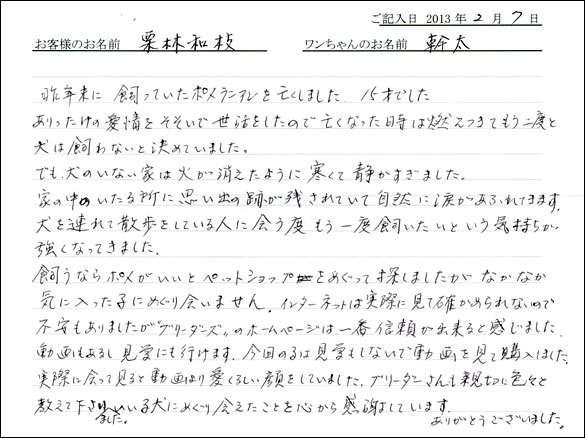 ご記入日 2013 年 2 月 7 日
お客様のお名前 栗林和枝 ワンちゃんのお名前 幹太
昨年末に 飼っていたポメランアンを亡くしました 15才でした
ありったけの愛情をそそいで世話をしたので亡くなった時は燃えつきてもう二度と
犬は飼わないと決めていました。
でも、犬のいない家は火が消えたように寒くて静かすぎました。
家の中のいたる所に思い出の跡が残されていて自然に涙があふれてきます。
犬を連れて散歩をしている人に会う度もう一度飼いたいという気持ちが
強くなってきました。
飼うならポメがいいとペットショップをめぐって探しましたがなかなか
気に入った子にめぐり会いません。インターネットは実際に見て確かめられないので
不安もありましたが"ブリーダーズ"のホームページは一番信頼が出来ると感じました
動画もあるし見学にも行けます。今回のるは見学もしないで動画を見て購入しました。
実際に会って見ると動画より愛くるしい顔をしていました。ブリーダーさんも親切に色々と
教えて下さりました。いい子犬にめぐり会えたことを心から感謝しています。
ありがとうございました。